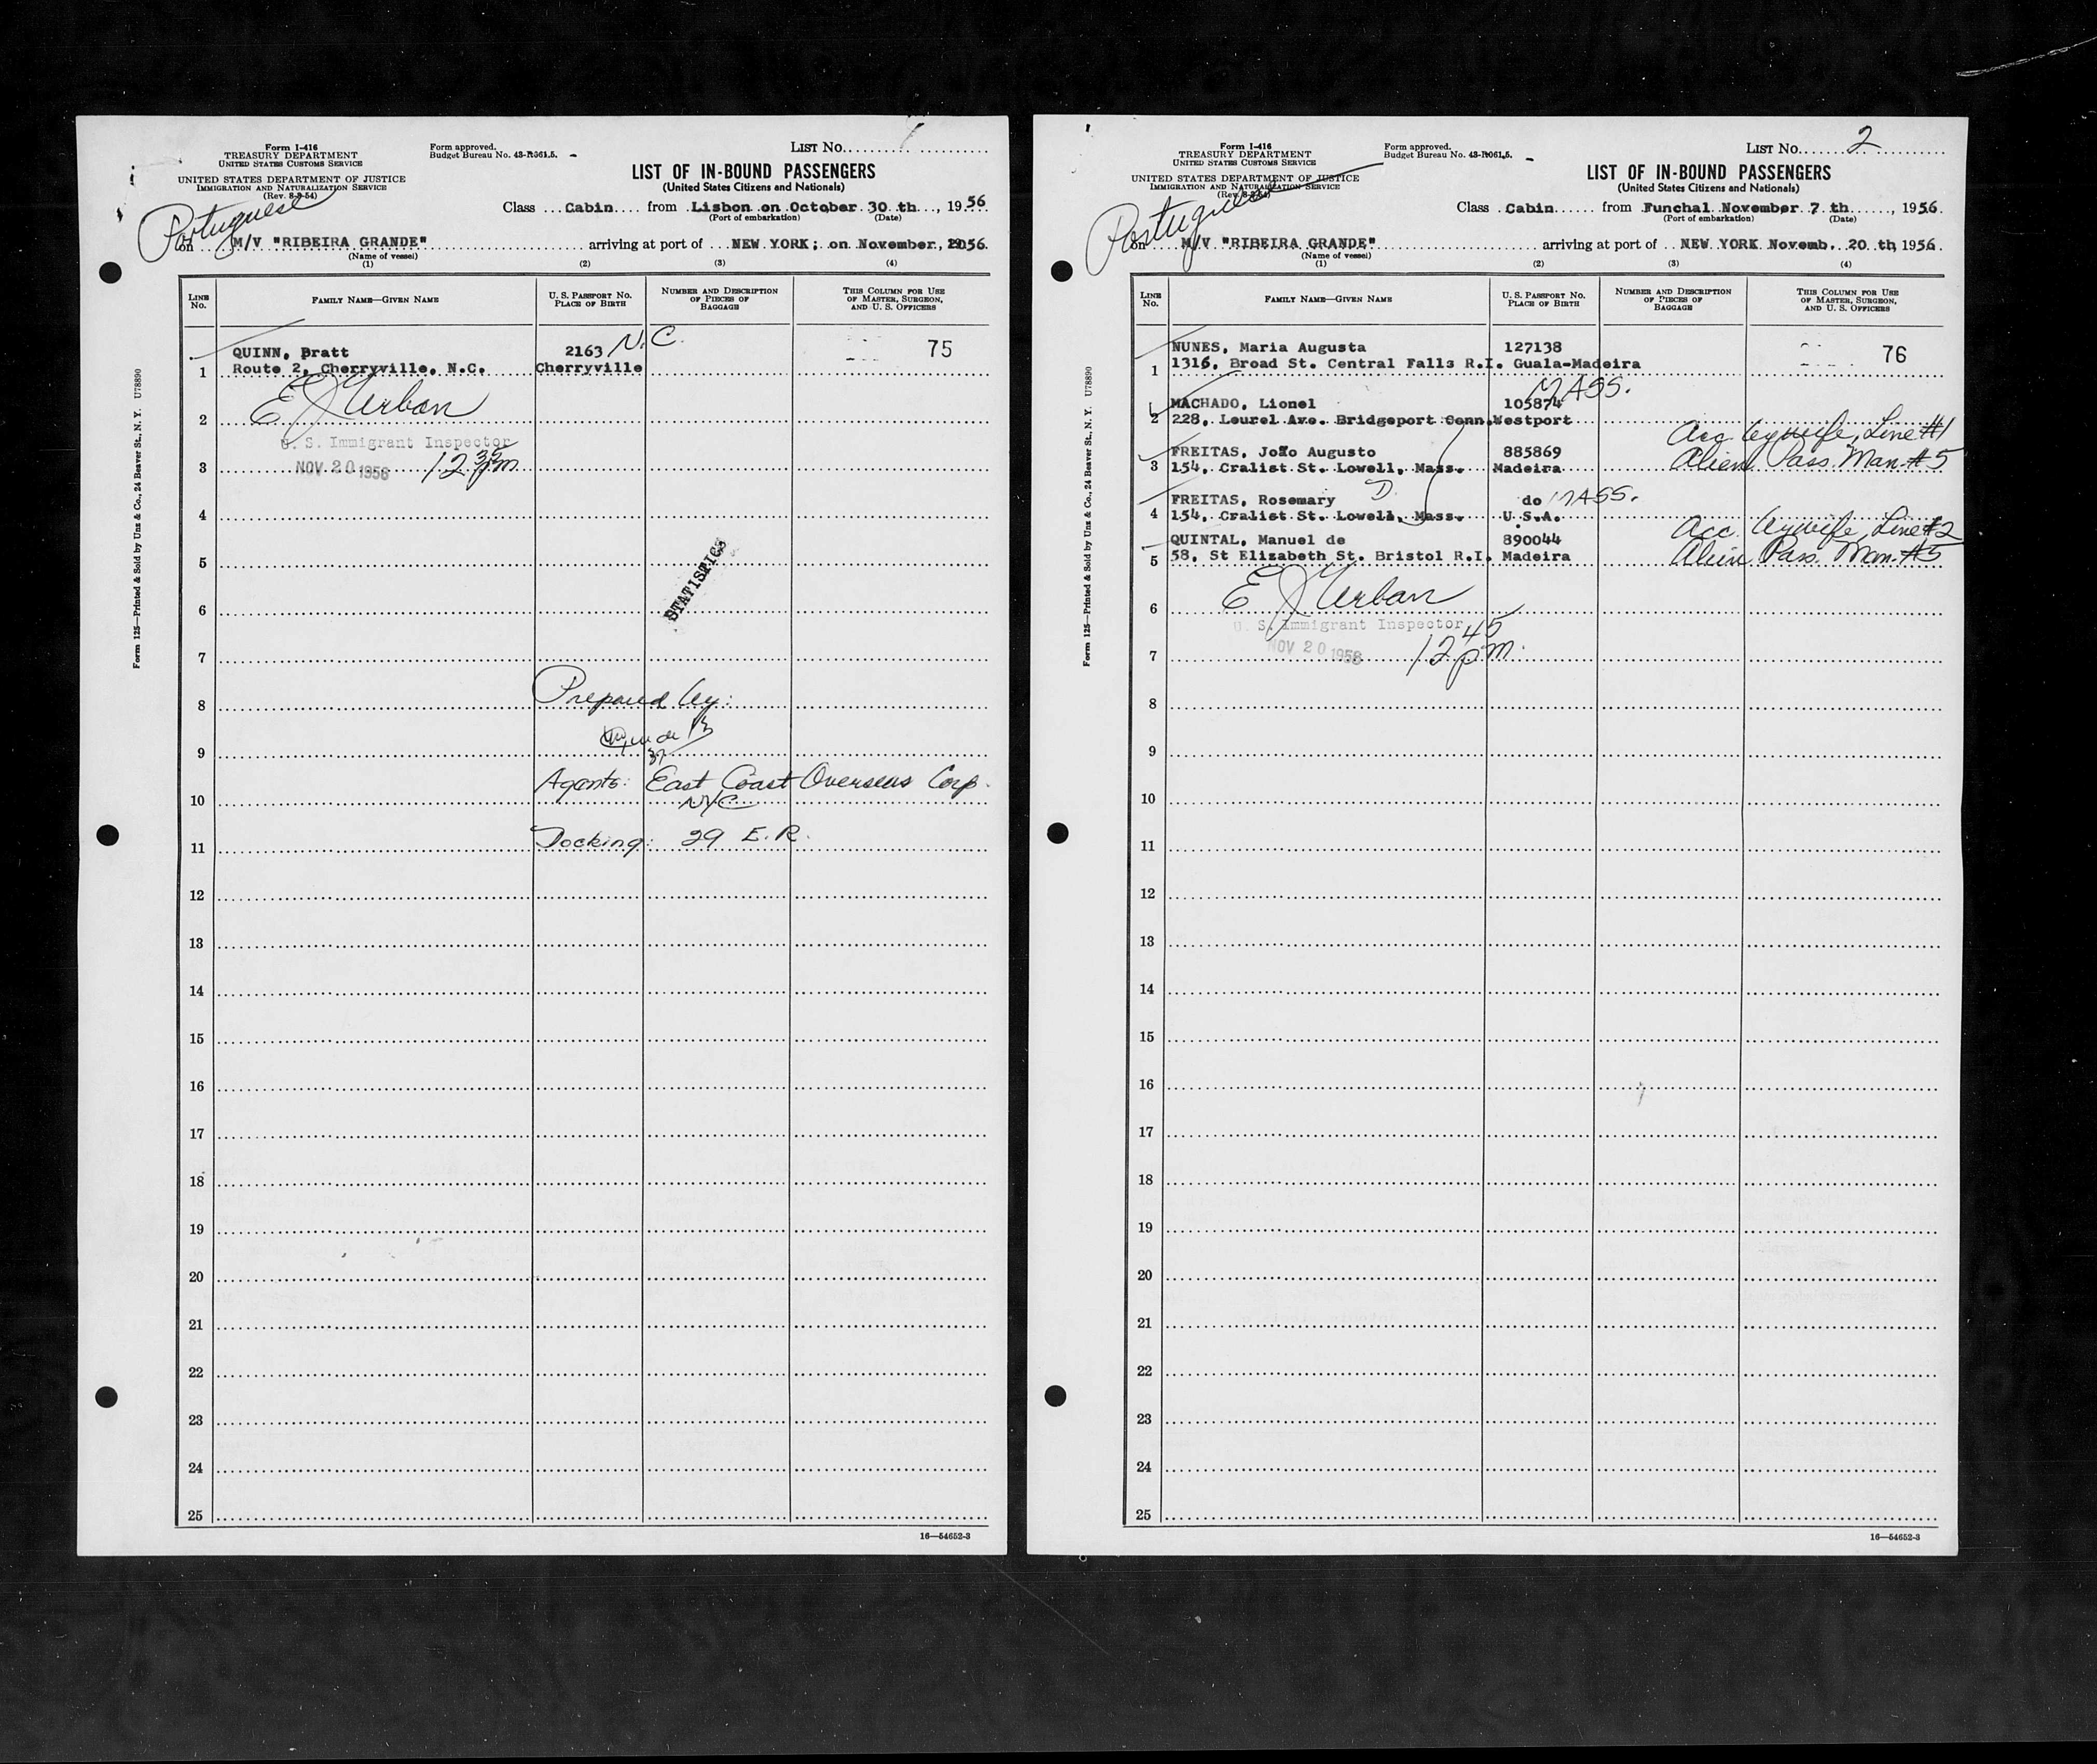 Form I-416
TREASURY DEPARTMENT
UNITED STATES CUSTOMS SERVICE
UNITED STATES DEPARTMENT OF JUSTICE
IMMIGRATION AND NATURALIZATION SERVICE
(Rev. 8-9-54)
Form approved.
Budget Bureau No. 43-R061.5.
LIST No.
LIST OF IN-BOUND PASSENGERS
(United States Citizens and Nationals)
Portuguese
Class Cabin from Lisbon on October 30 th, 1956
(Port of embarkation) (Date)
on M/V "RIBEIRA GRANDE" arriving at port of NEW YORK; on November, 2056.
(Name of vessel)
(1) (2) (3) (4)
LINE No. FAMILY NAME—GIVEN NAME U. S. PASSPORT No. PLACE OF BIRTH NUMBER AND DESCRIPTION OF PIECES OF BAGGAGE THIS COLUMN FOR USE OF MASTER, SURGEON, AND U. S. OFFICERS
QUINN, Bratt 2163 N.C. 75
1 Route 2, Cherryville, N.C. Cherryville
E J Urban
2
U. S. Immigrant Inspector
3 NOV 20 1956 12 35 pm
4
5
STATISTICS
6
7
Prepared by:
8
9
Agents: East Coast Overseas Corp.
10 NYC
11 Docking: 29 E.R.
12
13
14
15
16
17
18
19
20
21
22
23
24
25
16—54652-3
Form 125—Printed & Sold by Unz & Co., 24 Beaver St., N. Y. U78890
Form I-416
TREASURY DEPARTMENT
UNITED STATES CUSTOMS SERVICE
UNITED STATES DEPARTMENT OF JUSTICE
IMMIGRATION AND NATURALIZATION SERVICE
(Rev. 8-9-54)
Form approved.
Budget Bureau No. 43-R061.5.
LIST No. 2
LIST OF IN-BOUND PASSENGERS
(United States Citizens and Nationals)
Portuguese
Class Cabin from Funchal November 7 th, 1956.
(Port of embarkation) (Date)
on M/V "RIBEIRA GRANDE" arriving at port of NEW YORK Novemb. 20 th, 1956.
(Name of vessel)
(1) (2) (3) (4)
LINE No. FAMILY NAME—GIVEN NAME U. S. PASSPORT No. PLACE OF BIRTH NUMBER AND DESCRIPTION OF PIECES OF BAGGAGE THIS COLUMN FOR USE OF MASTER, SURGEON, AND U. S. OFFICERS
NUNES, Maria Augusta 127138 76
1 1316, Broad St. Central Falls R.I. Guala-Madeira
MASS.
MACHADO, Lionel 105874
2 228, Leurel Ave. Bridgeport Conn. Westport
Acc. by wife, Line #1
FREITAS, João Augusto 885869
3 154, Cralist St. Lowell, Mass. Madeira Alien Pass. Man. #5
FREITAS, Rosemary D. do MASS.
4 154, Cralist St. Lowell, Mass. U.S.A.
Acc. by wife, Line #2
QUINTAL, Manuel de 890044
5 58, St Elizabeth St. Bristol R.I. Madeira Alien Pass. Man. #5
E J Urban
6
U. S. Immigrant Inspector
7 NOV 20 1956 12 45 pm.
8
9
10
11
12
13
14
15
16
17
18
19
20
21
22
23
24
25
16—54652-3
Form 125—Printed & Sold by Unz & Co., 24 Beaver St., N. Y. U78890